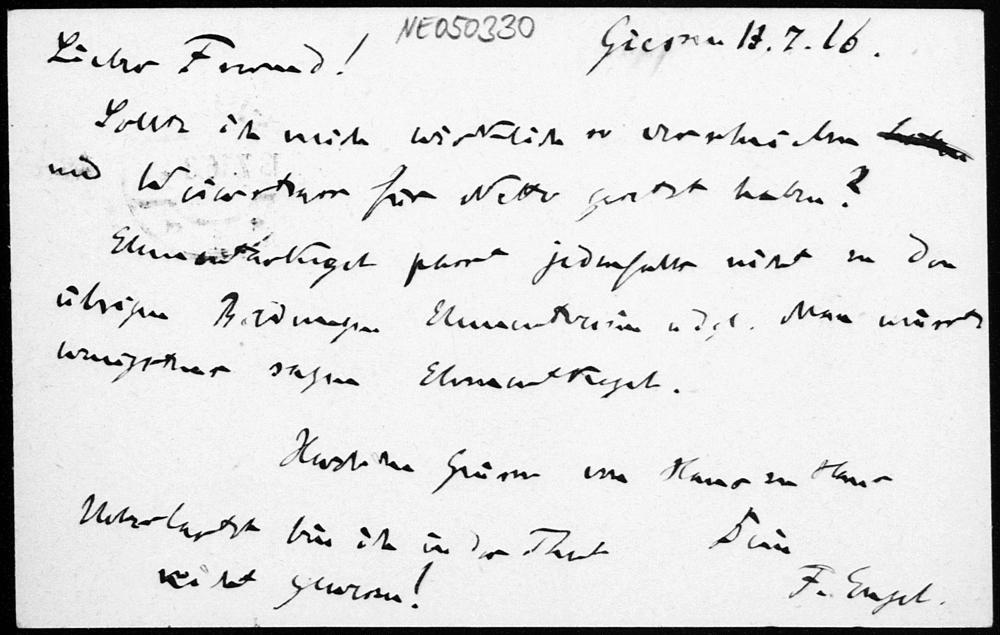 NE050330
Giessen 11.7.16.
Lieber Freund!
Sollte ich mich wirklich so verschrieben haben
und Würstner für Netto gesetzt haben?
Elementarkegel passt jedenfalls nicht zu den
übrigen Bildungen Elementverein u dgl. Man müsste
wenigstens sagen Elementkegel.
Herzliche Grüsse von Haus zu Haus
Dein
Fr. Engel.
bin ich in der That
nicht gewesen!